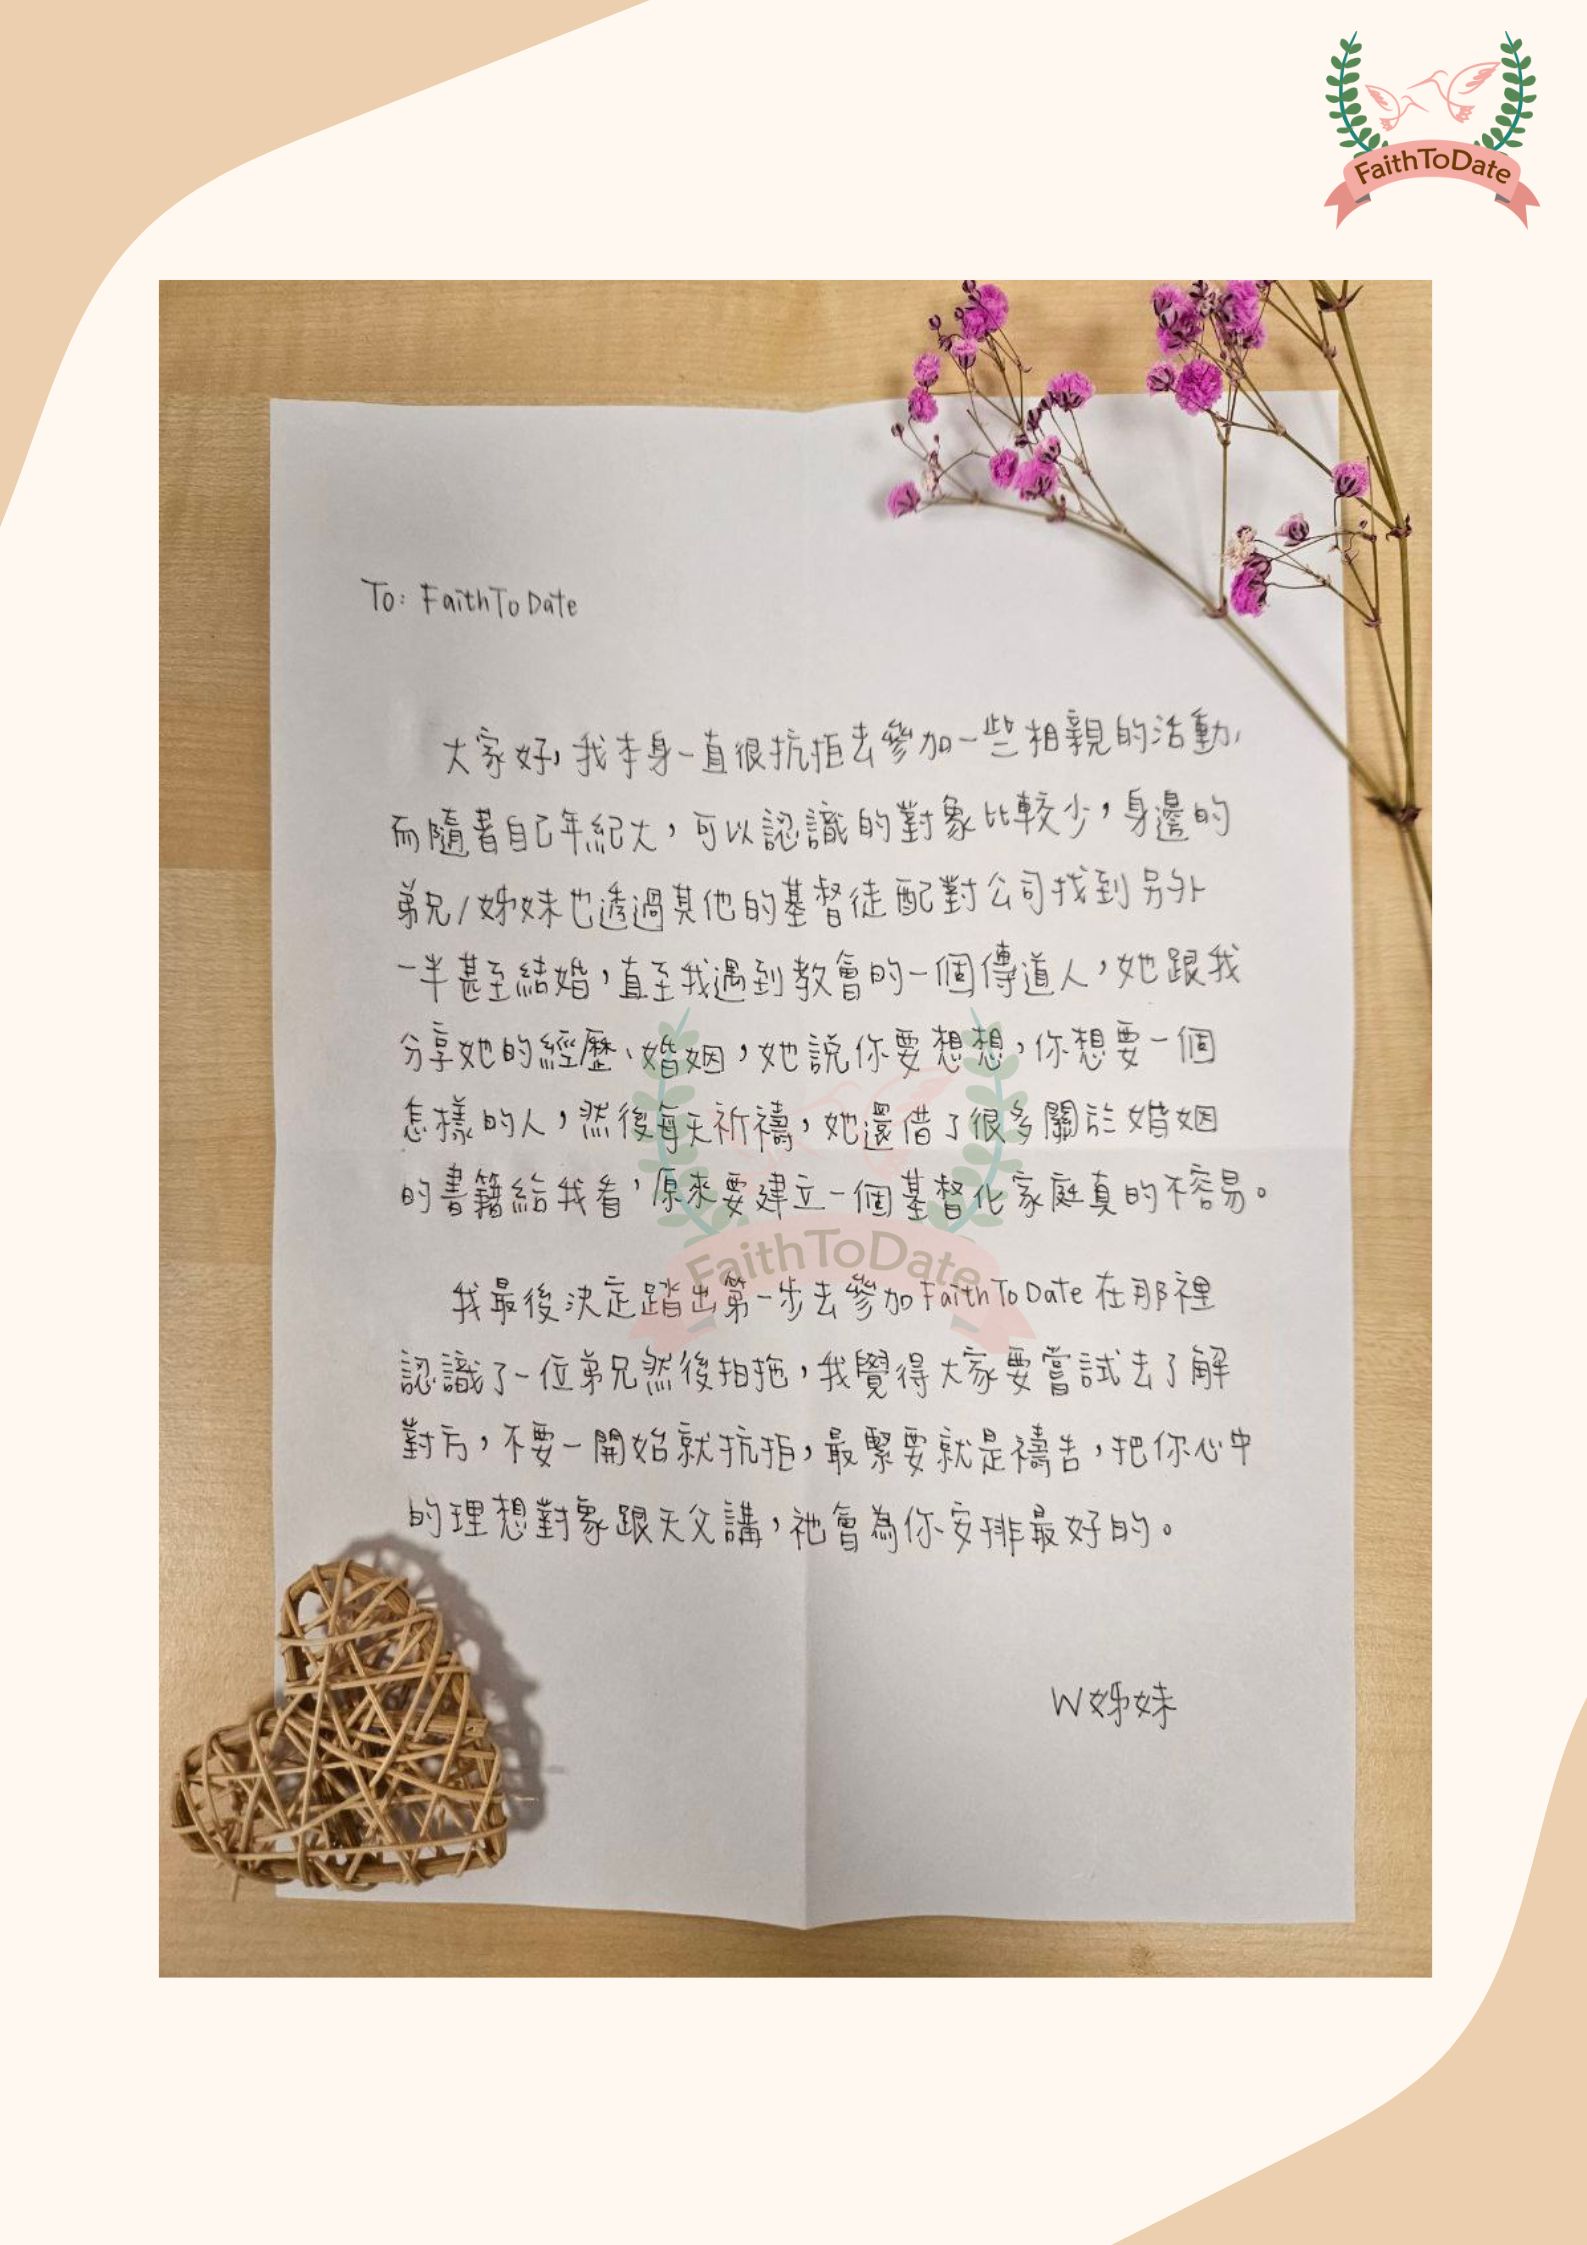 FaithToDate
To: FaithToDate
大家好，我本身一直很抗拒去參加一些相親的活動，
而隨著自己年紀大，可以認識的對象比較少，身邊的
弟兄/姊妹也透過其他的基督徒配對公司找到另外
一半甚至結婚，直至我遇到教會的一個傳道人，她跟我
分享她的經歷、婚姻，她說你要想想，你想要一個
怎樣的人，然後每天祈禱，她還借了很多關於婚姻
的書籍給我看，原來要建立一個基督化家庭真的不容易。
FaithToDate
我最後決定踏出第一步去參加FaithToDate在那裡
認識了一位弟兄然後拍拖，我覺得大家要嘗試去了解
對方，不要一開始就抗拒，最緊要就是禱告，把你心中
的理想對象跟天父講，祂會為你安排最好的。
W姊妹